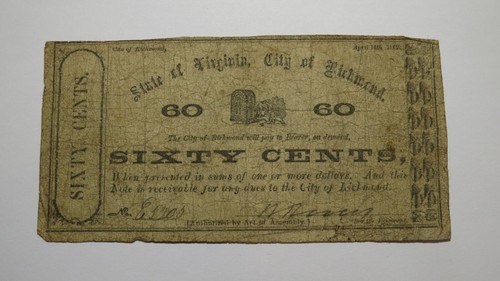 City of Richmond,
April 14th, 1862.
State of Virginia, City of Richmond.
SIXTY CENTS.
60
60
The City of Richmond will pay to Bearer, on demand,
SIXTY CENTS,
When presented in sums of one or more dollars. And this
Note is receivable for any dues to the City of Richmond.
No.
[Authorized by Act of Assembly.]